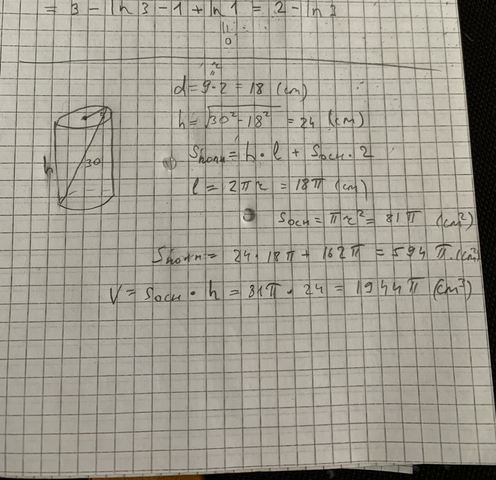 = 3 - ln 3 - 1 + ln 1 = 2 - ln 3
0
r
d = 9·2 = 18 (cm)
h = √30² - 18² = 24 (cm)
h
30
Sполн = h · l + Sосн · 2
l = 2πr = 18π (cm)
Sосн = πr² = 81π (cm²)
Sполн = 24 · 18π + 162π = 594π (cm²)
V = Sосн · h = 81π · 24 = 1944π (cm³)